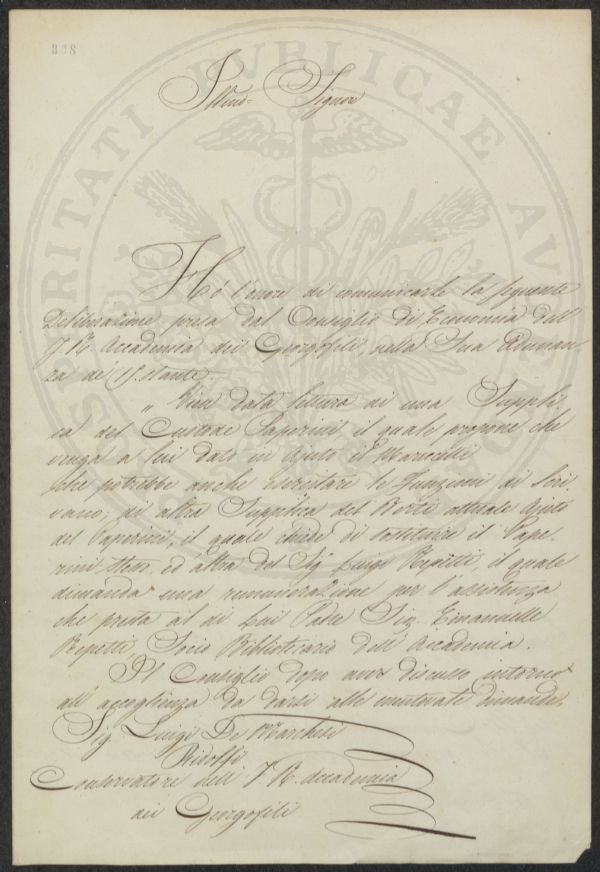 808
Illmo. Signore
Hò l'onore di comunicarle la seguente
Deliberazione presa dal Consiglio di Economia dell'
I. R. Accademia dei Georgofili, nella Sua Adunan-
za de' 15. stante.
„ Vien data lettura di una Suppli-
ca del Custode Paperini il quale propone che
venga a lui dato in Ajuto il Marucelli
che potrebbe anche esercitare le funzioni di Scri-
vano; di altra Supplica del Berti attuale Ajuto
del Paperini, il quale chiede di sostituire il Pape-
rini stesso. ed altra del Sig Luigi Repetti, il quale
dimanda una remunerazione per l'assistenza
che presta al di Lui Padre Sig. Emanuelle
Repetti Socio Bibliotecario dell'Accademia.
Il Consiglio dopo aver discusso intorno
all'accoglienza da darsi alle mentovate dimande,
Sig Luigi De Marchesi
Ridolfi
Conservatore dell'I. R. Accademia
dei Georgofili
PROSPERITATI PUBLICAE AU